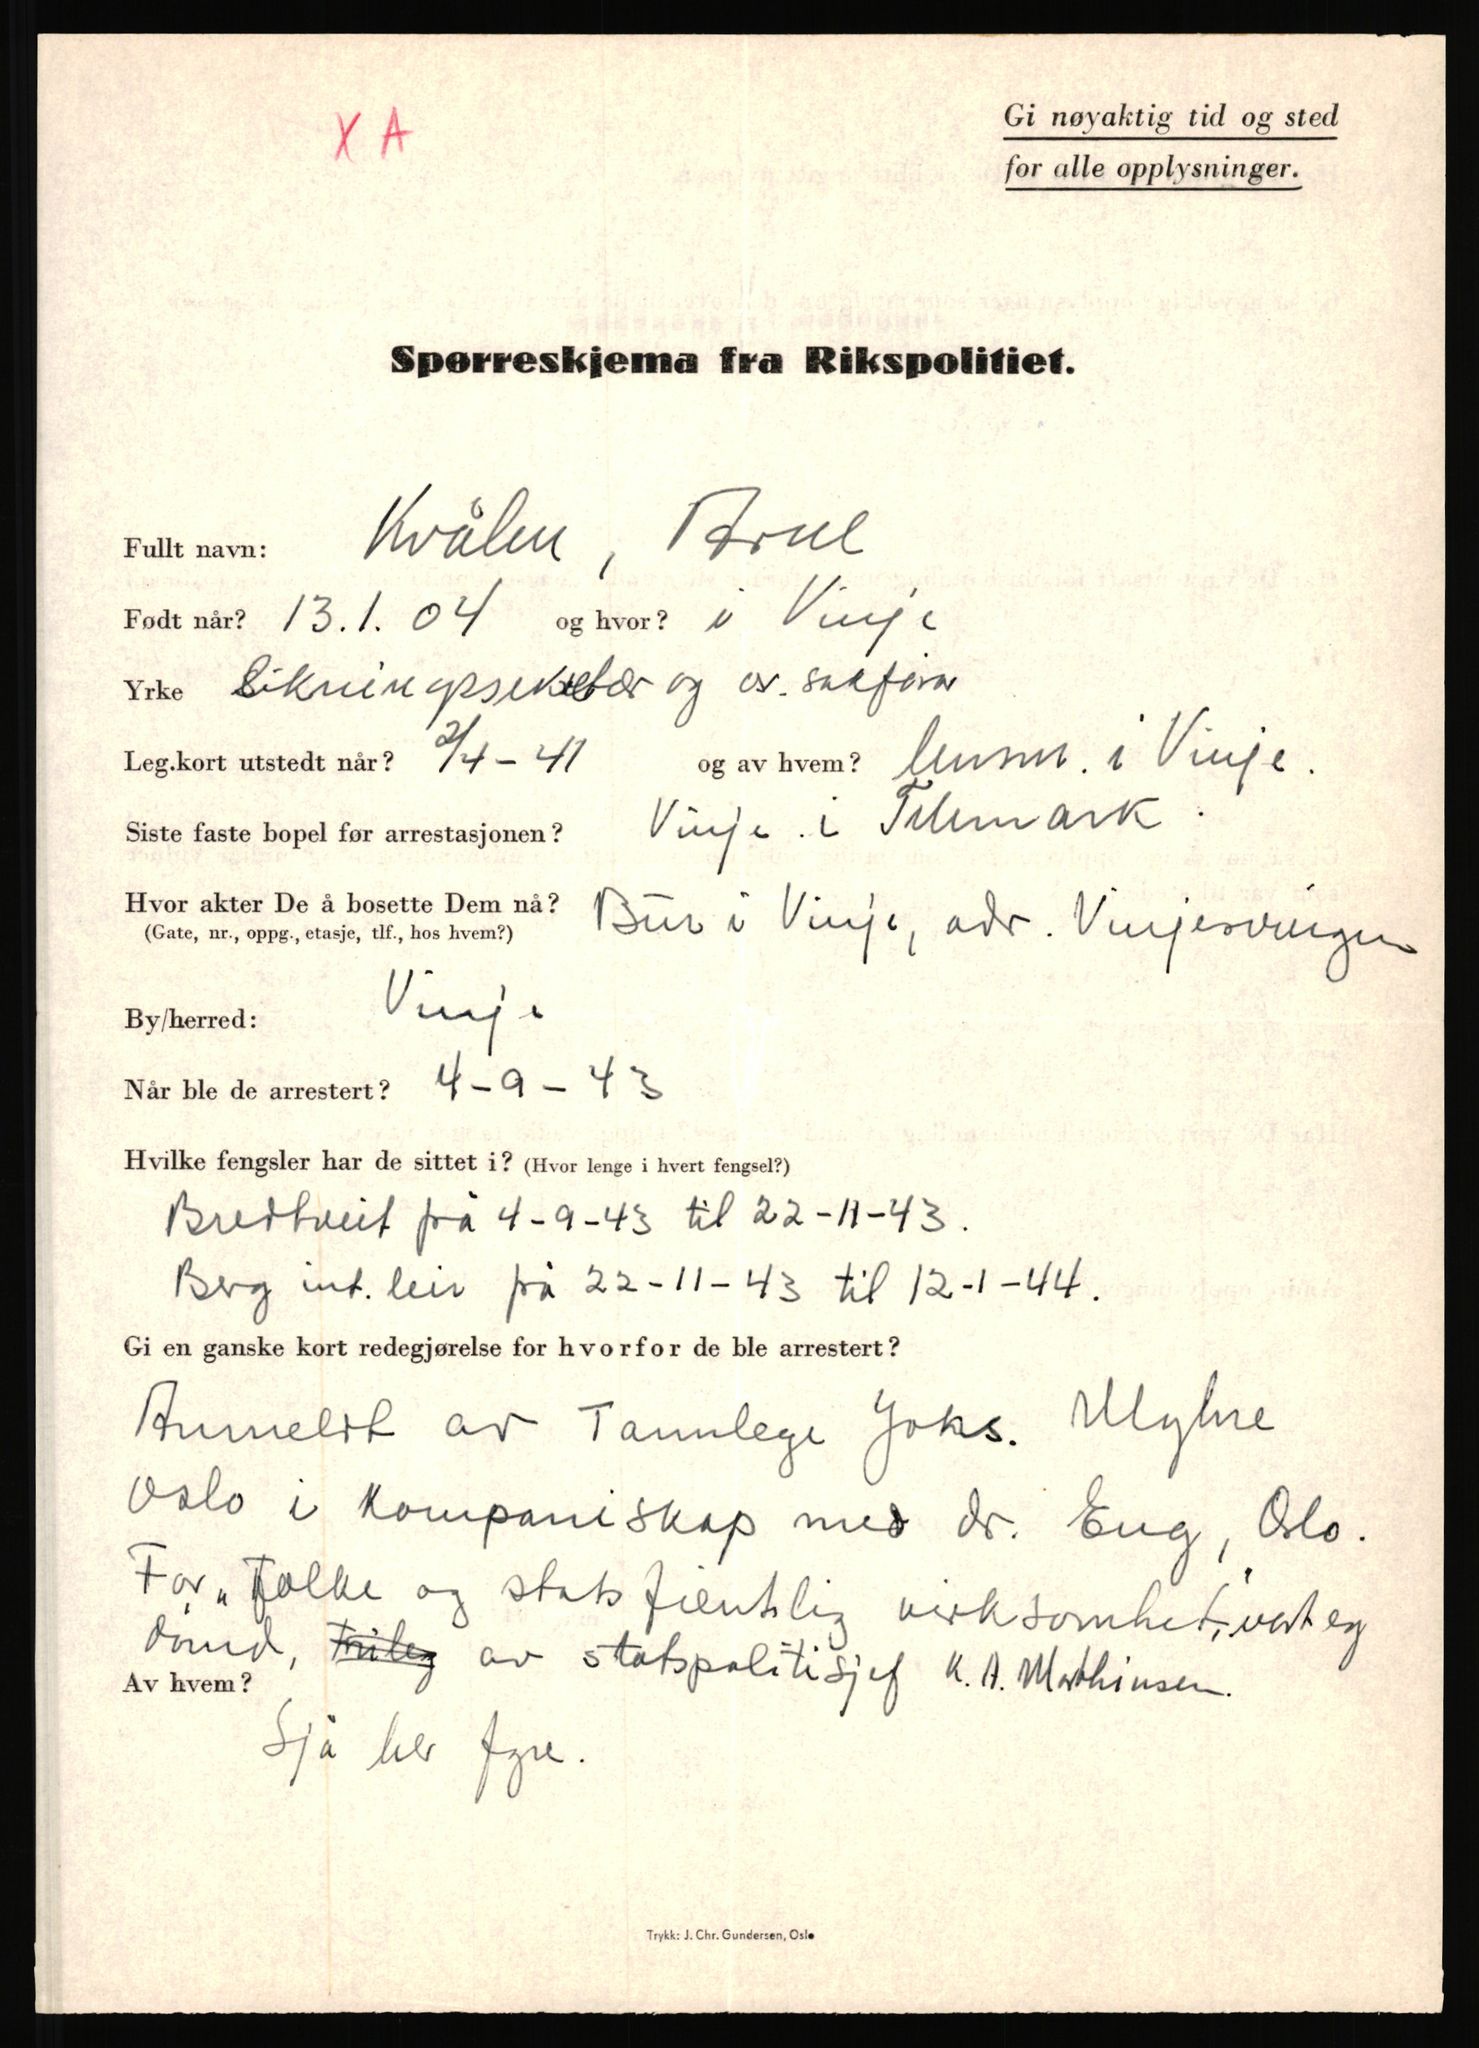 X A
Gi nøyaktig tid og sted
for alle opplysninger.
Spørreskjema fra Rikspolitiet.
Fullt navn: Kvålen,
Født når? 13.1.04 og hvor? i Vinje
Yrke Likningssekretær og or. sakførar
Leg.kort utstedt når? 2/4-41 og av hvem? lensm. i Vinje.
Siste faste bopel før arrestasjonen? Vinje i Telemark.
Hvor akter De å bosette Dem nå? Bur i Vinje, adr. Vinjesvingen
(Gate, nr., oppg., etasje, tlf., hos hvem?)
By/herred: Vinje
Når ble de arrestert? 4-9-43
Hvilke fengsler har de sittet i? (Hvor lenge i hvert fengsel?)
Bredtveit frå 4-9-43 til 22-11-43.
Berg int. leir frå 22-11-43 til 12-1-44.
Gi en ganske kort redegjørelse for hvorfor de ble arrestert?
Anmeldt av Tannlege Johs. Myhre
Oslo i kompaniskap med dr. Eng, Oslo.
For „Folke og statsfientlig virksomhet", vart eg
dømd, av statspolitisjef K. A. Marthinsen.
Av hvem?
Sjå her fyre.
Trykk: J. Chr. Gundersen, Oslo